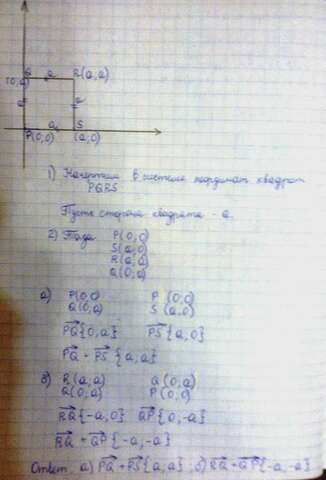 (0,a) Q a R(a,a)
a a
P(0,0) a S
(a,0)
1) Начертим в системе координат квадрат
PQRS
Пусть сторона квадрата - a.
2) Тогда P(0;0)
S(a,0)
R(a,a)
Q(0,a)
а) P(0,0) P(0,0)
Q(0,a) S(a,0)
PQ{0,a} PS{a,0}
PQ + PS{a,a}
б) R(a,a) Q(0,a)
Q(0,a) P(0,0)
RQ{-a,0} QP{0,-a}
RQ + QP{-a,-a}
Ответ: а) PQ+PS{a,a}; б) RQ+QP{-a,-a}